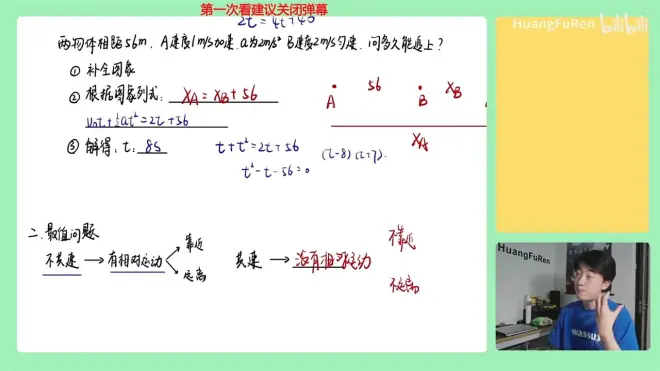 第一次看建议关闭弹幕
2t = 4t+46
两物体相距56m. A速度1m/s加速.a为2m/s² B速度2m/s匀速.问多久能追上?
① 补全图象
② 根据图象列式: XA = XB + 56
V0t+½at²=2t+56
③ 解得: t: 8s
t+t²=2t+56
t²-t-56=0
(t-8)(t+7).
56
XB
A
B
XA
二.最值问题
不共速 → 有相对运动
靠近
远离
共速 → 没有相对运动
不靠近
不远离
HuangFuRen
bilibili
HuangFuRen